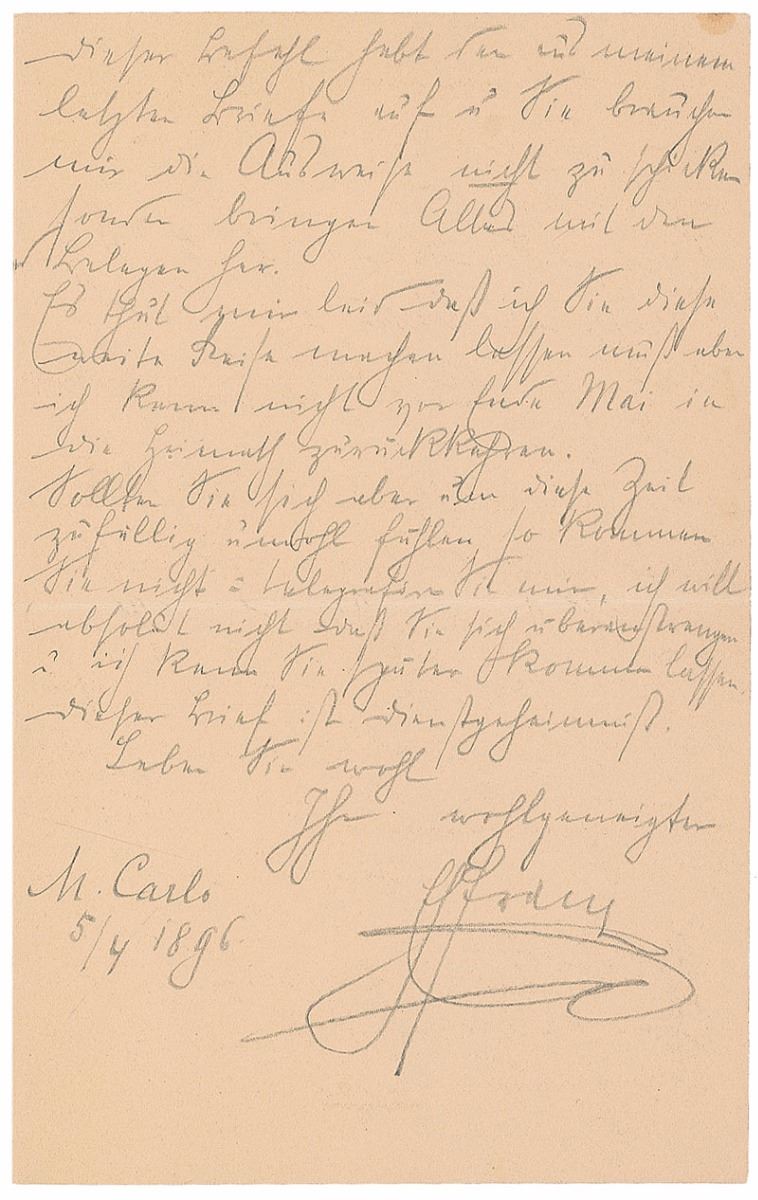 Dieser Befehl hebt den aus meinem
letzten Briefe auf u Sie brauchen
mir die Ausweise nicht zu schicken
sondern bringen Alles mit den
Belegen her.
Es thut mir leid daß ich Sie diese
weite Reise machen lassen muß aber
ich kann nicht vor Ende Mai in
die Heimath zurückkehren.
Sollten Sie sich aber um diese Zeit
zufällig unwohl fühlen, so kommen
Sie nicht u telegrafiren Sie mir, ich will
absolut nicht daß Sie sich überanstrengen
u ich kann Sie später kommen lassen.
Dieser Brief ist Dienstgeheimniß.
Leben Sie wohl
Ihr wohlgeneigter
M. Carlo
5/4 1896.